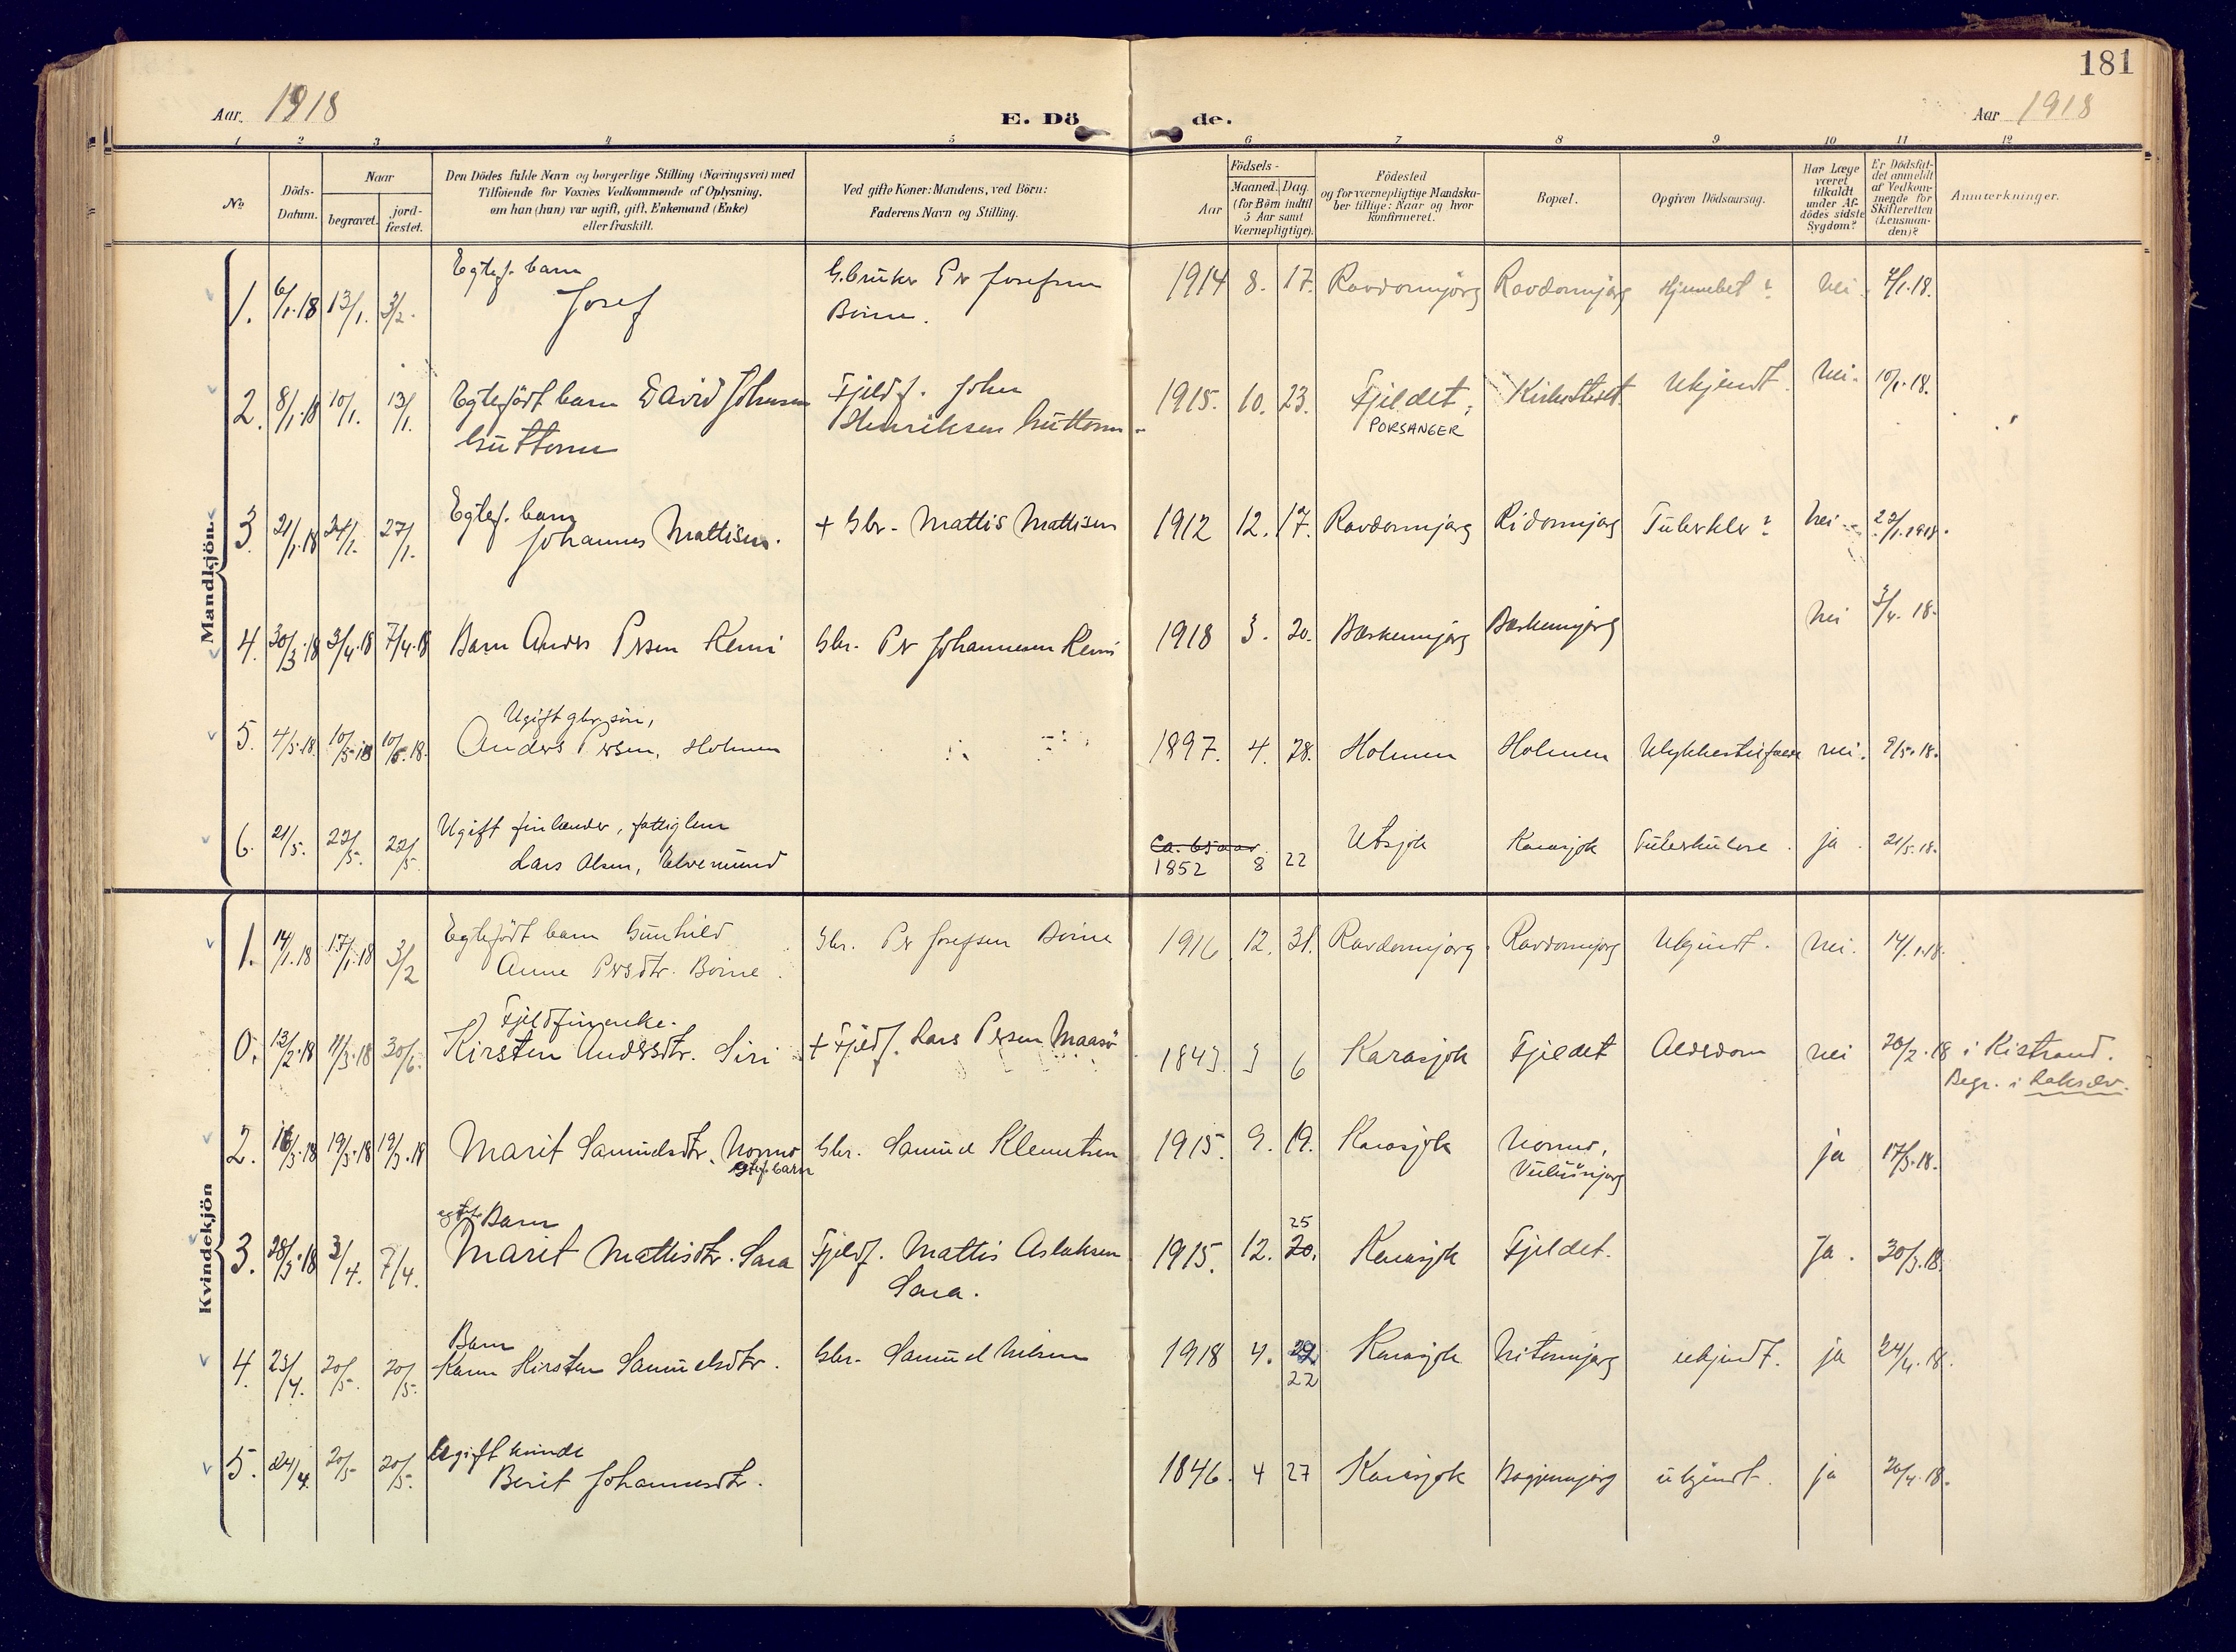 181
Aar. 1918
E. Dö
de.
Aar 1918
1 2 3 4 5 6 7 8 9 10 11 12
No
Döds-
Datum.
Naar
begravet.
jord-
fæstet.
Den Dödes fulde Navn og borgerlige Stilling (Næringsvei) med
Tilföiende for Voxnes Vedkommende af Oplysning,
om han (hun) var ugift, gift, Enkemand (Enke)
eller fraskilt.
Ved gifte Koner: Mandens, ved Börn:
Faderens Navn og Stilling.
Födsels-
Aar
Maaned. Dag.
(for Börn indtil
5 Aar samt
Værnepligtige).
Födested
og for værnepligtige Mandska-
ber tillige: Naar og hvor
konfirmeret.
Bopæl.
Opgiven Dödsaarsag.
Har Læge
været
tilkaldt
under Af-
dödes sidste
Sygdom?
Er Dödsfal-
det anmeldt
af Vedkom-
mende for
Skifteretten
(Lensman-
den)?
Anmærkninger.
Mandkjön
1. 6/1.18 13/1. 3/2. Egtef. barn
Josef
G.bruker Per Josefsen
Boine.
1914 8. 17. Ravdomnjarg Ravdomnjarg ? nei. 7/1.18.
2. 8/1.18 10/1. 13/1. Egtefödt barn David Johnsen
Guttorm
Fjeldf. John
Henriksen Guttorm
1915. 10. 23. Fjeldet,
PORSANGER
Kirkestedet. Ukjendt. Nei. 10/1.18.
3. 21/1.18 24/1. 27/1. Egtef. barn
Johannes Mattisen.
+ Gbr. Mattis Mattisen
1912 12. 17. Ravdomnjarg Ridomnjarg Tuberklr? nei 22/1.1918.
4. 30/3.18 3/4.18 7/4.18 Barn Anders Persen Kemi
Gbr. Per Johannesen Kemi
1918 3. 20. Baskemnjarg Baskemnjarg nei 3/4.18.
5. 4/5.18. 10/5.18 10/5.18. Ugift gbr.søn,
Anders Persen, Holmen
1897. 4. 28. Holmen Holmen Ulykkestilfælde nei. 9/5.18.
6. 21/5. 22/5. 22/5. Ugift finlænder, fattiglem
Lars Olsen, Elvemund
Ca. 65 aar
1852 8 22 Utsjok Karasjok Tuberkulose. ja. 21/5.18.
Kvindekjön
1. 14/1.18 17/1.18 3/2 Egtefödt barn Gunhild
Anne Persdtr. Boine.
Gbr. Per Josefsen Boine
1916 12. 31. Ravdomnjarg. Ravdomnjarg Ukjendt. Nei. 14/1.18.
0. 13/2.18 11/3.18 30/6. Fjeldfinenke.
Kirsten Andersdtr. Siri
+ Fjeldf. Lars Persen Maasö
1843. 3 6 Karasjok Fjeldet Alderdom nei 20/2.18 i Kistrand.
Begr. i Lakselv.
2. 16/3.18 19/3.18 19/3.18 Marit Samuelsdtr. Nomno
egtef. barn
Gbr. Samuel Klemetsen
1915. 9. 19. Karasjok Nomno, ja 17/3.18.
3. 28/3.18 3/4. 7/4. egtef. Barn
Marit Mattisdtr. Sara
Fjeldf. Mattis Aslaksen
Sara.
1915. 12. 20. 25 Karasjok Fjeldet. Ja. 30/3.18.
4. 23/4. 20/5. 20/5. Barn
Karen Kirsten Samuelsdtr.
Gbr. Samuel Nilsen
1918 4. 22 Karasjok Nitomnjarg ukjendt. ja 24/4.18.
5. 24/4. 20/5. 20/5. Ugift kvinde
Berit Johannesdtr.
1846. 4 27 Karasjok ukjendt. ja 26/4.18.